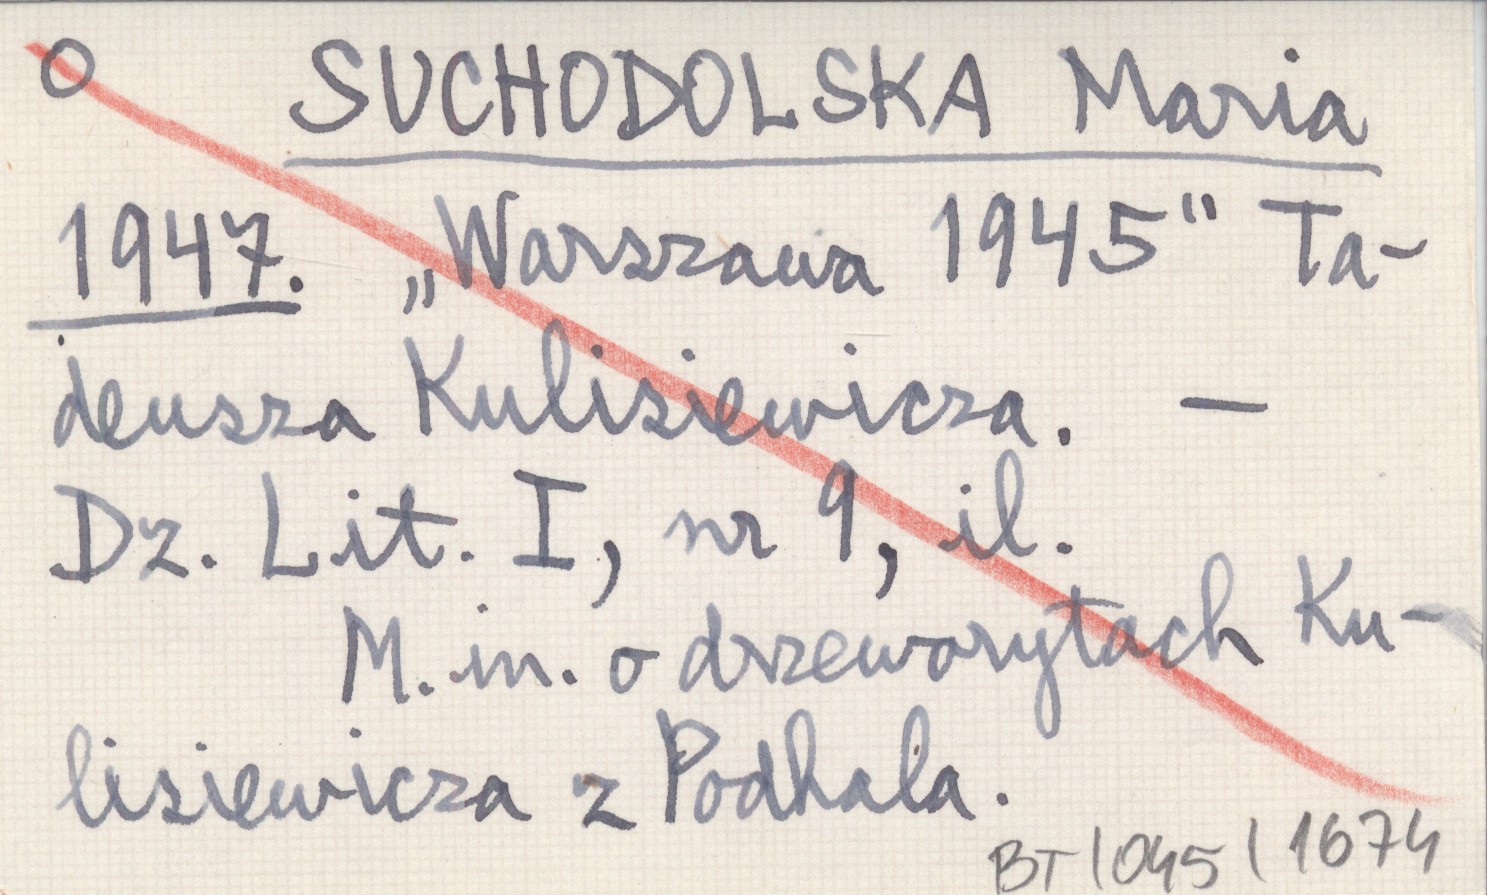 O SUCHODOLSKA Maria
1947. „Warszawa 1945" Ta-
deusza Kulisiewicza. —
Dz. Lit. I, nr 9, il.
M.in. o drzeworytach Ku-
lisiewicza z Podhala.
BT/045/1674